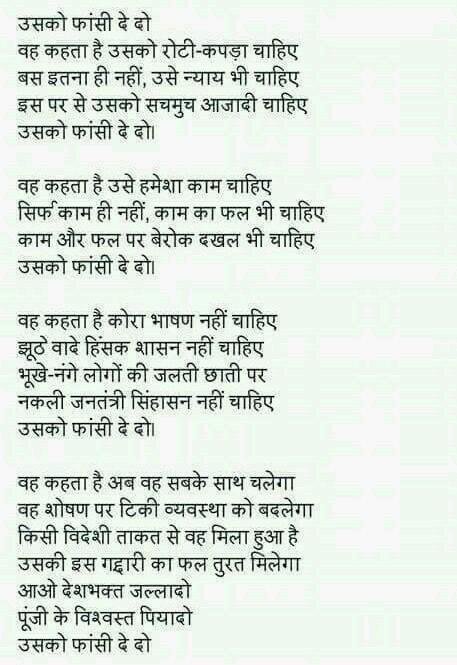 उसको फांसी दे दो
वह कहता है उसको रोटी-कपड़ा चाहिए
बस इतना ही नहीं, उसे न्याय भी चाहिए
इस पर से उसको सचमुच आजादी चाहिए
उसको फांसी दे दो।

वह कहता है उसे हमेशा काम चाहिए
सिर्फ काम ही नहीं, काम का फल भी चाहिए
काम और फल पर बेरोक दखल भी चाहिए
उसको फांसी दे दो।

वह कहता है कोरा भाषण नहीं चाहिए
झूठे वादे हिंसक शासन नहीं चाहिए
भूखे-नंगे लोगों की जलती छाती पर
नकली जनतंत्री सिंहासन नहीं चाहिए
उसको फांसी दे दो।

वह कहता है अब वह सबके साथ चलेगा
वह शोषण पर टिकी व्यवस्था को बदलेगा
किसी विदेशी ताकत से वह मिला हुआ है
उसकी इस गद्दारी का फल तुरत मिलेगा
आओ देशभक्त जल्लादो
पूंजी के विश्वस्त पियादो
उसको फांसी दे दो